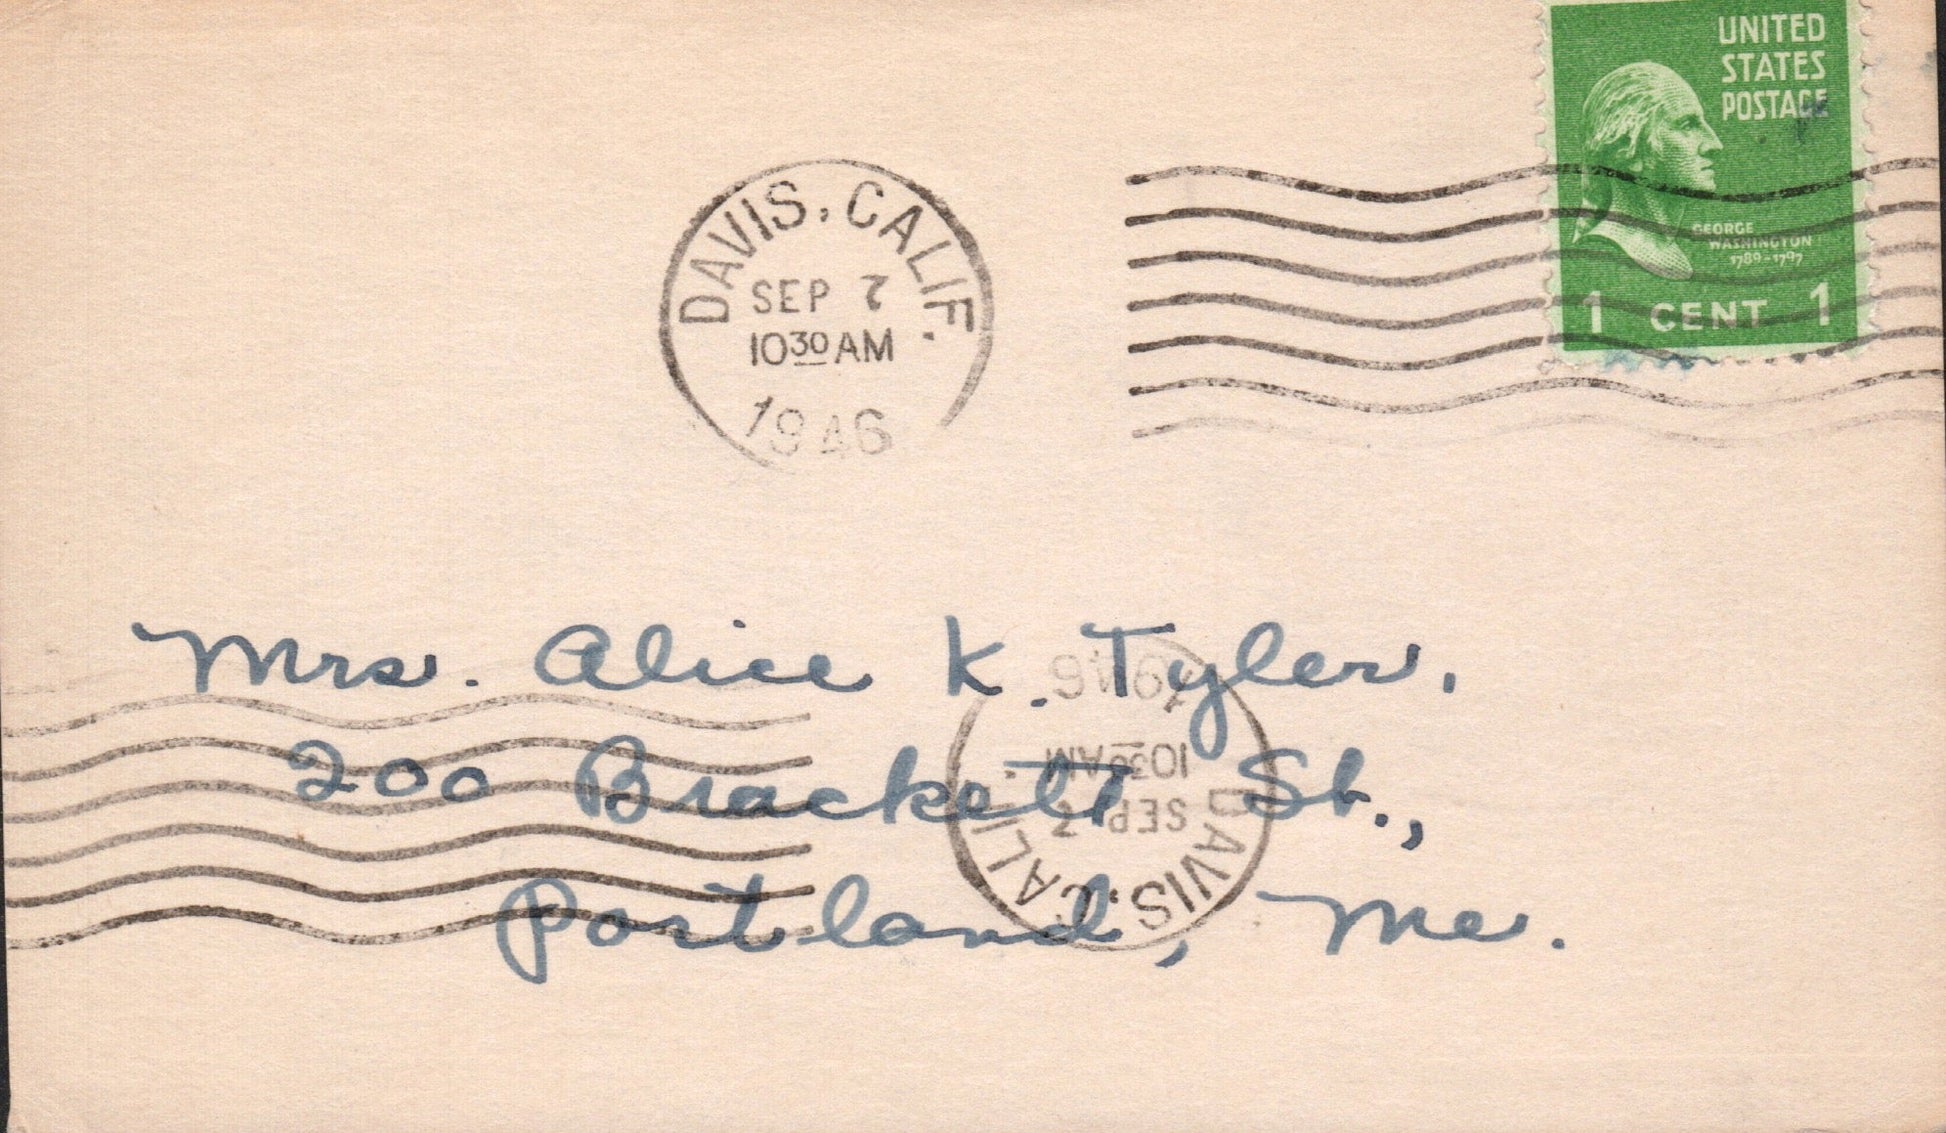 UNITED
STATES
POSTAGE
GEORGE
WASHINGTON
1789-1797
1 CENT 1
DAVIS, CALIF.
SEP 7
10 30 AM
1946
Mrs. Alice K. Tyler.
200 Brackett St.,
Portland, Me.
DAVIS, CALIF.
SEP 7
10 30 AM
1946